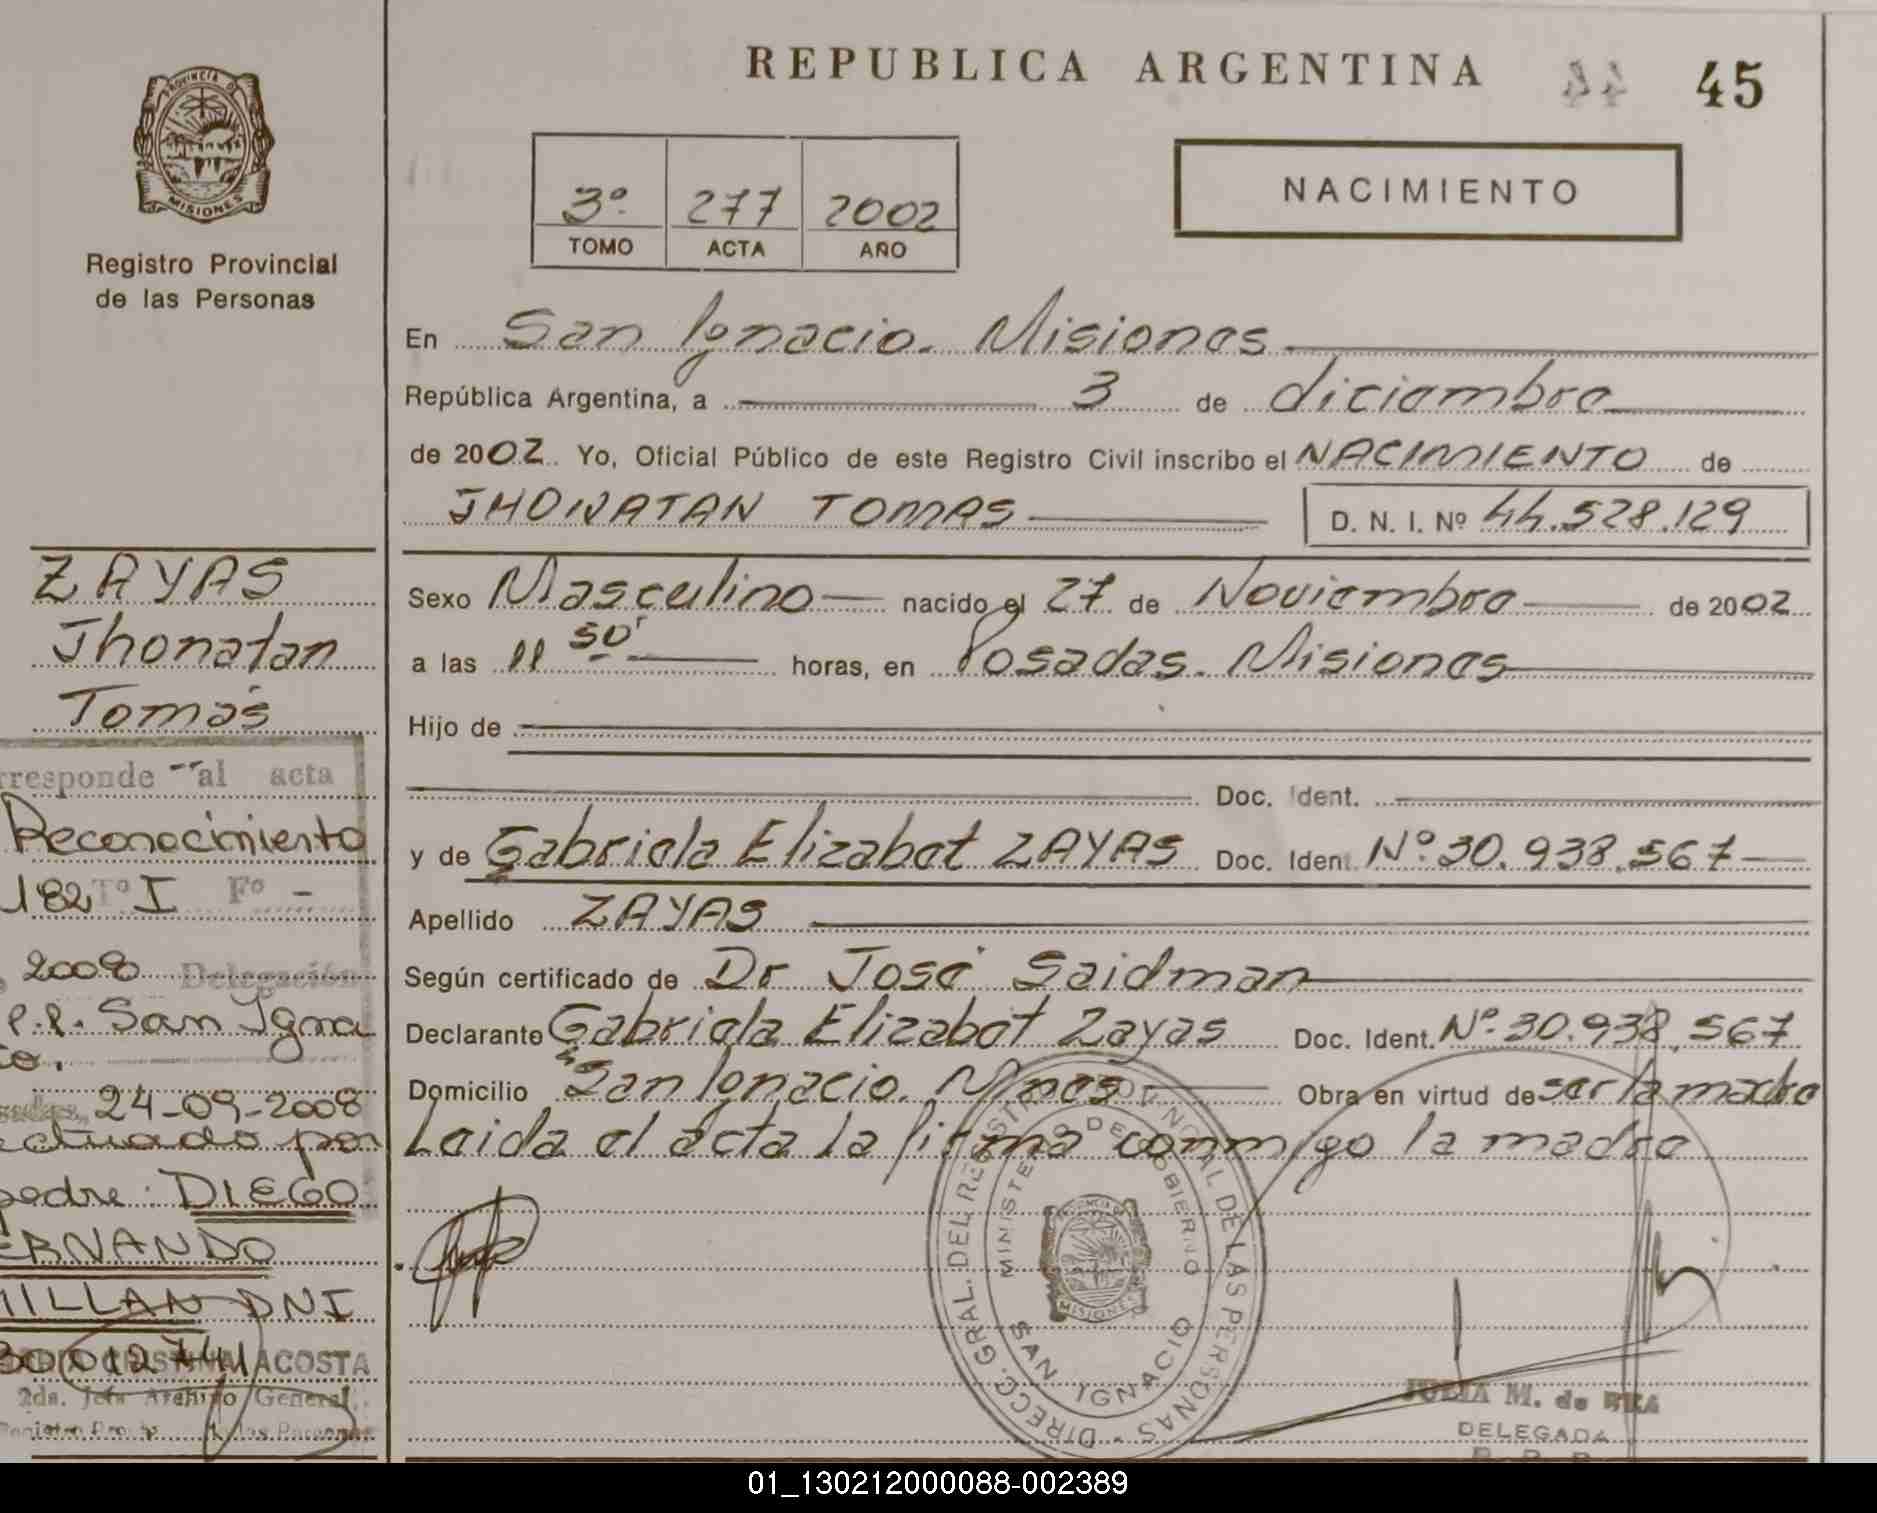 REPUBLICA ARGENTINA 44 45
PROVINCIA DE
MISIONES
Registro Provincial
de las Personas
3º 277 2002
TOMO ACTA AÑO
NACIMIENTO
En San Ignacio. Misiones
República Argentina, a 3 de diciembre
de 2002. Yo, Oficial Público de este Registro Civil inscribo el NACIMIENTO de
JHONATAN TOMAS D. N. I. Nº 44.528.129
Sexo Masculino nacido el 27 de Noviembre de 2002
a las 11 50' horas, en Posadas. Misiones
Hijo de
Doc. Ident.
y de Gabriela Elizabet ZAYAS Doc. Ident. Nº 30.938.567
Apellido ZAYAS
Según certificado de Dr José Saidman
Declarante Gabriela Elizabet Zayas Doc. Ident. Nº 30.938.567
Domicilio San Ignacio. Mnes Obra en virtud de ser la madre
Leida el acta la firma conmigo la madre
ZAYAS
Jhonatan
Tomás
rresponde al acta
Reconocimiento
182 Tº I Fº -
2008 Delegación
p.p. San Igna
co.
24-09-2008
ectuado por
padre: DIEGO
ERNANDO
MILLAN DNI
30012741
CRISTINA ACOSTA
2da. Jefa Archivo General
DIRECC. GRAL. DEL REGISTRO PROVINCIAL DE LAS PERSONAS
MINISTERIO DE GOBIERNO
MISIONES
SAN IGNACIO
JULIA M. de REA
DELEGADA
R. P. P.
01_130212000088-002389